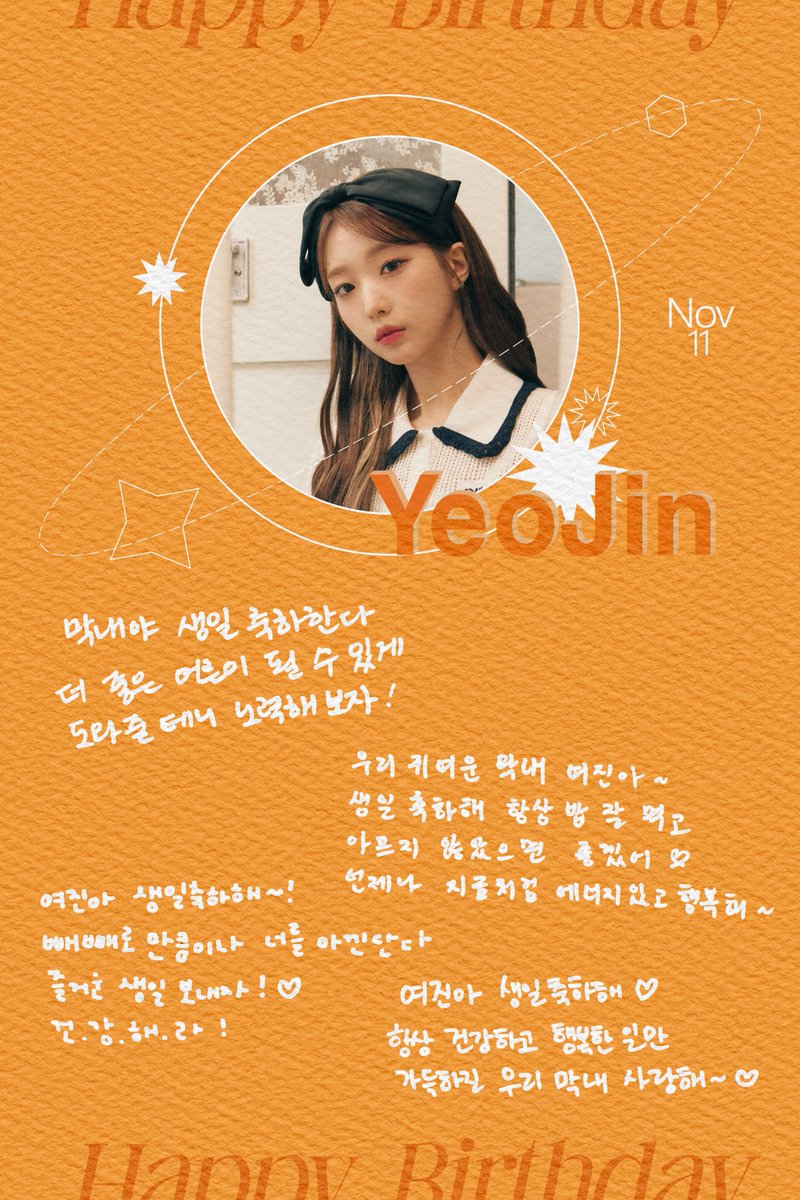 Happy Birthday
Nov
11
YeoJin
막내야 생일 축하한다
더 좋은 어른이 될 수 있게
도와줄테니 노력해보자!
우리 귀여운 막내 여진아~
생일 축하해 항상 밥 잘 먹고
아프지 않았으면 좋겠어 ♡
언제나 지금처럼 에너지있고 행복해~
여진아 생일축하해~!
빼빼로 만큼이나 너를 아낀단다
즐거운 생일 보내자! ♡
건.강.해.라!
여진아 생일축하해 ♡
항상 건강하고 행복한 일만
가득하길 우리 막내 사랑해~♡
Happy Birthday